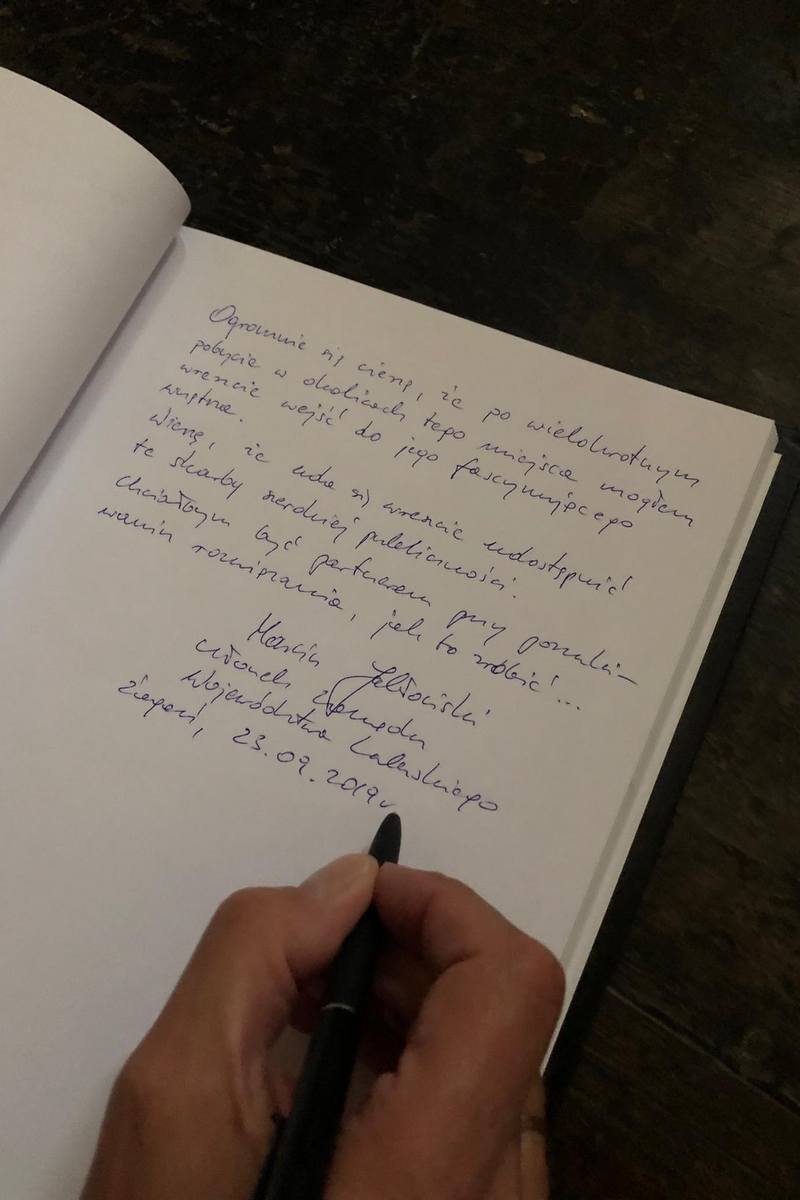 Ogromnie się cieszę, że po wielokrotnym
pobycie w okolicach tego miejsca mogłem
wreszcie wejść do jego fascynującego
wnętrza.
Wierzę, że uda się wreszcie udostępnić
te skarby szerokiej publiczności.
Chciałbym być partnerem przy poszuki-
waniu rozwiązania, jak to zrobić...
Marcin Jabłoński
członek zarządu
Województwa Lubuskiego
Żagań, 23.09.2019 r